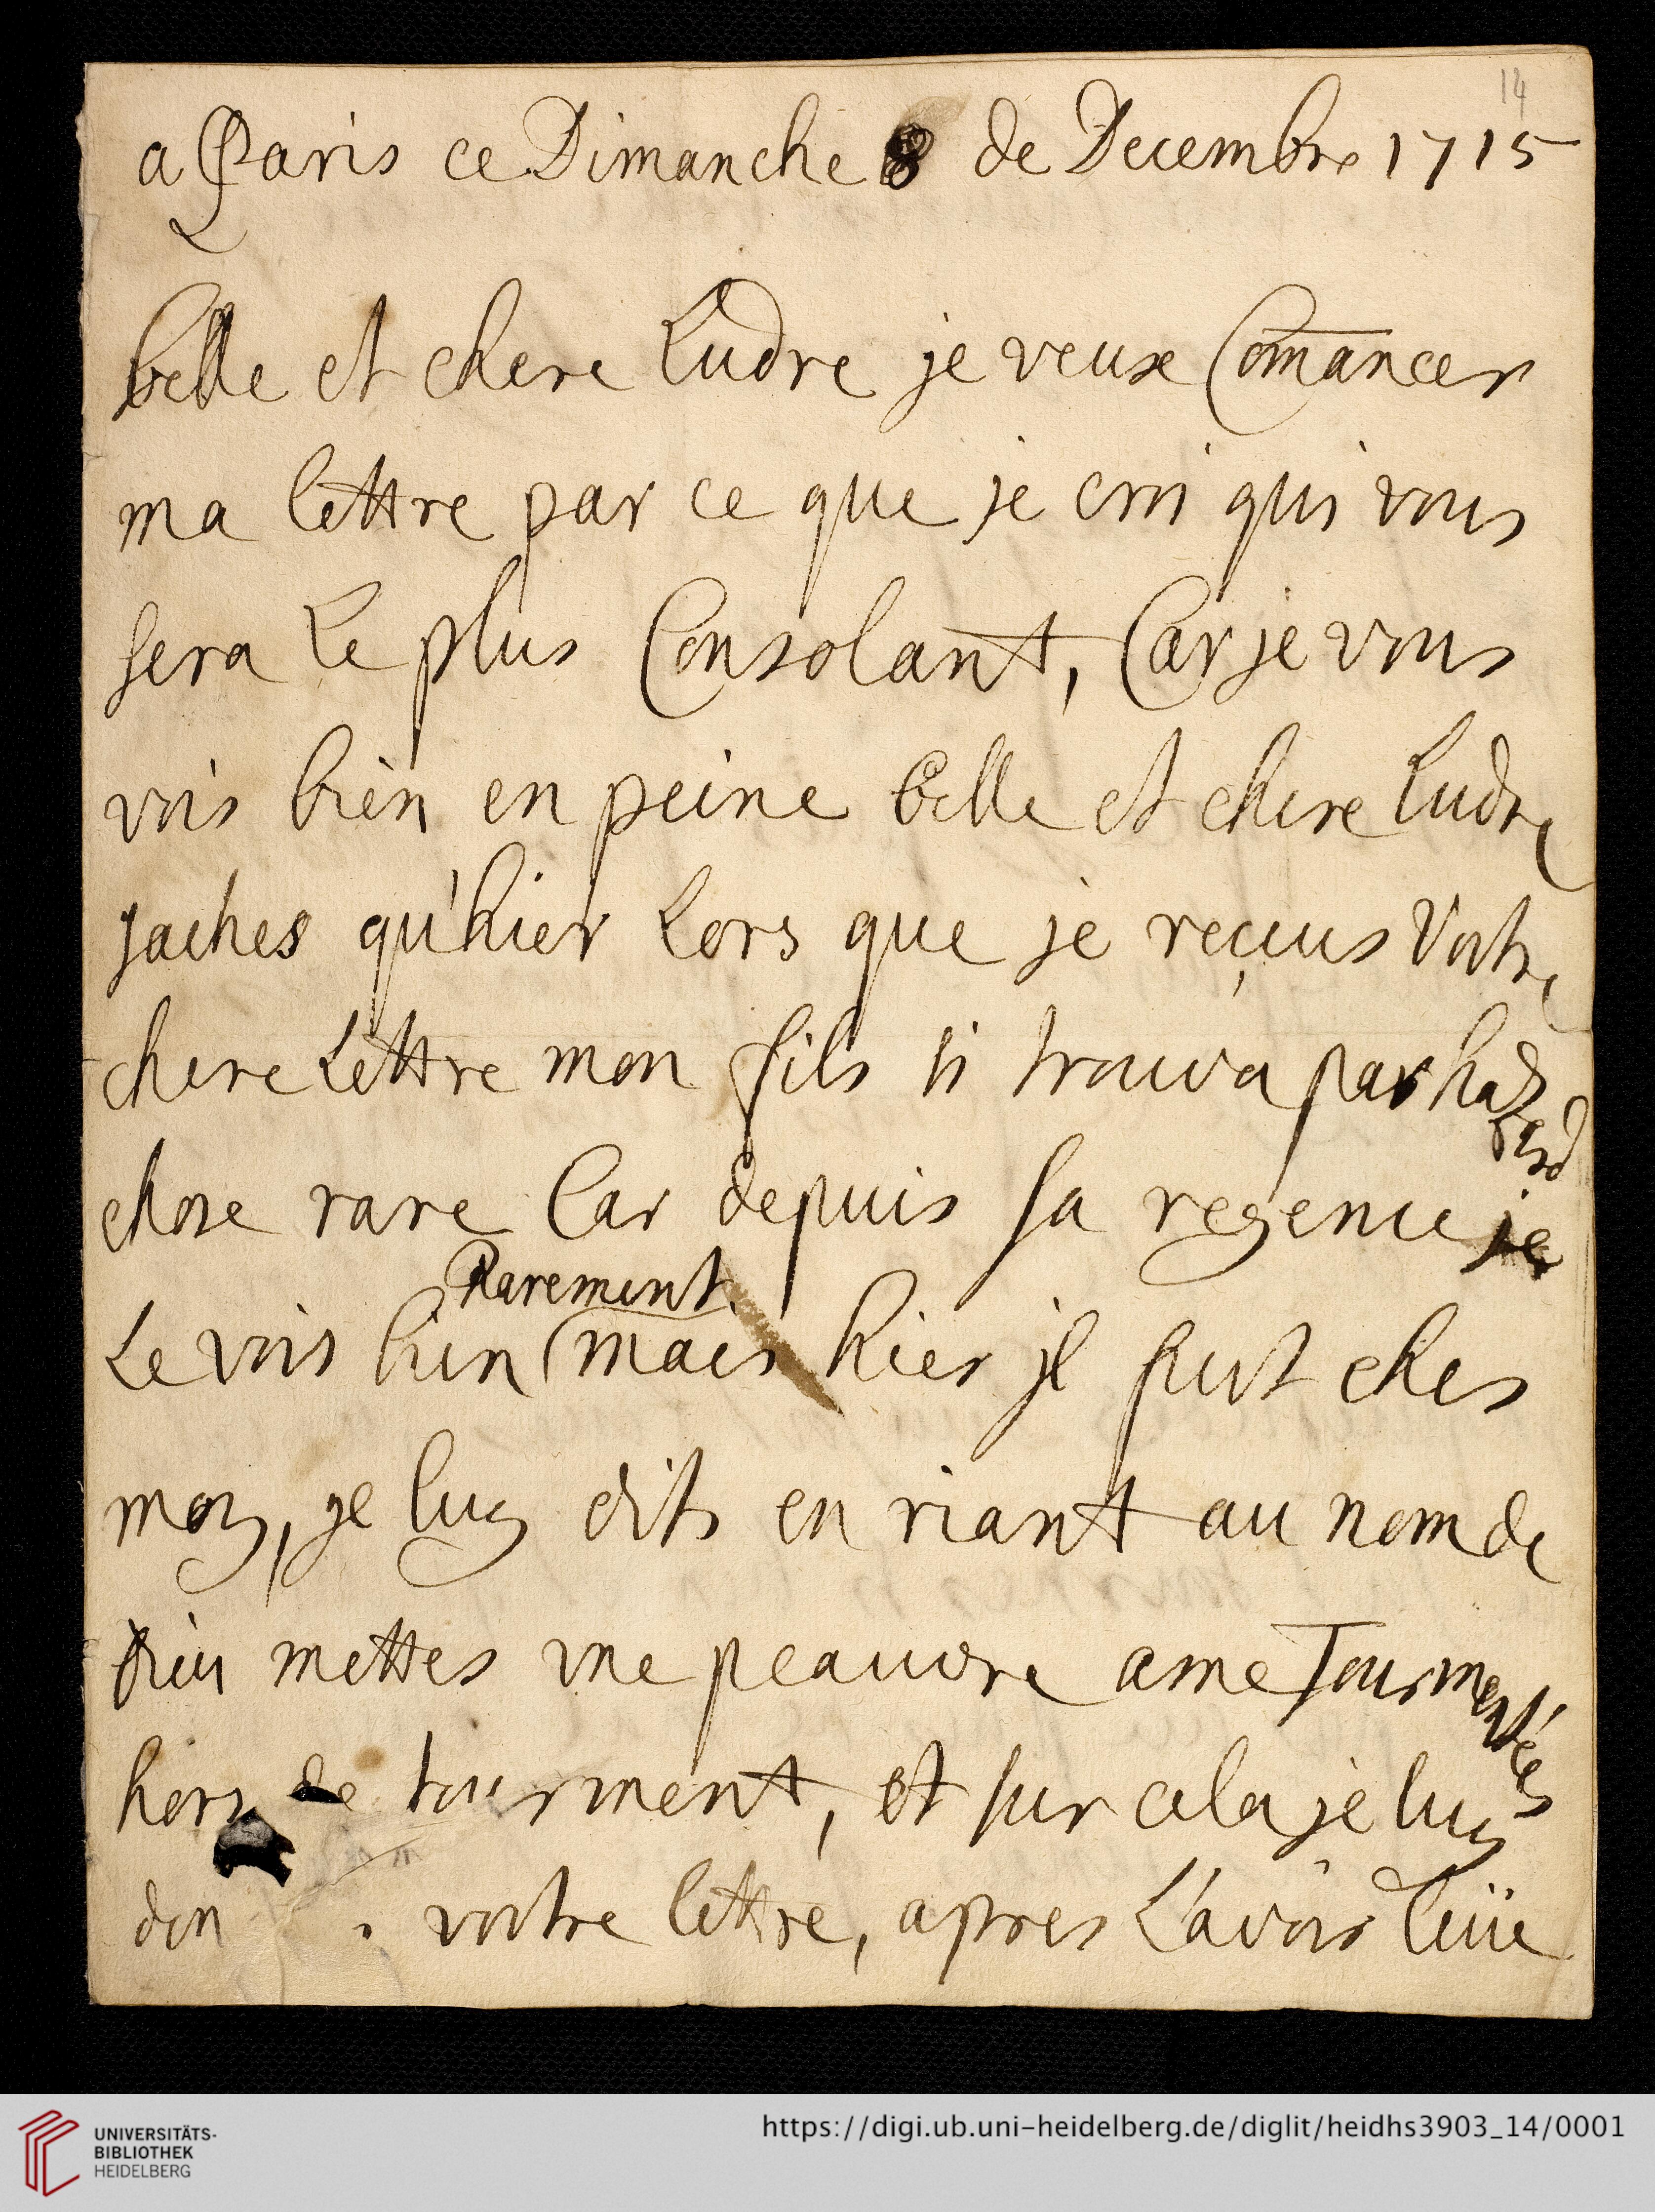 14
a Paris ce Dimanche 8 de Decembre 1715
belle et chere Ludre je veux Comancer
ma lettre par ce que je croi qui vous
sera Le plus Consolant, Car je vous
vois bien en peine belle et chere Ludre
saches qu'hier Lors que je reçeus Vostre
chere Lettre mon fils si trouva par hazard
chose rare Car depuis sa regence je
Rarement
Le vois bien mais hier jl fust ches
moy, je luy dits en riant au nom de
Dieu mettes vne peauvre ame Tourmentée
hors de tourment, et sur cela je luy
don votre lettre, apres L'avoir Leüe
UNIVERSITÄTS-
BIBLIOTHEK
HEIDELBERG
https://digi.ub.uni-heidelberg.de/diglit/heidhs3903_14/0001